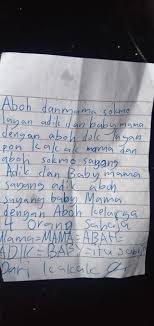 Aboh danmama sokmo
layan adik dan baby mama
dengan aboh dolc layan
pon kalcalc mama dan
aboh sokmo sayang
Adik dan Baby mama
sayang adik aboh
sayang baby Mama
dengan Aboh kelarga
4 Orang Sahaja
Mama=MAMA=ABAH=
ADIK=BAB =itu
Dari kalcalc